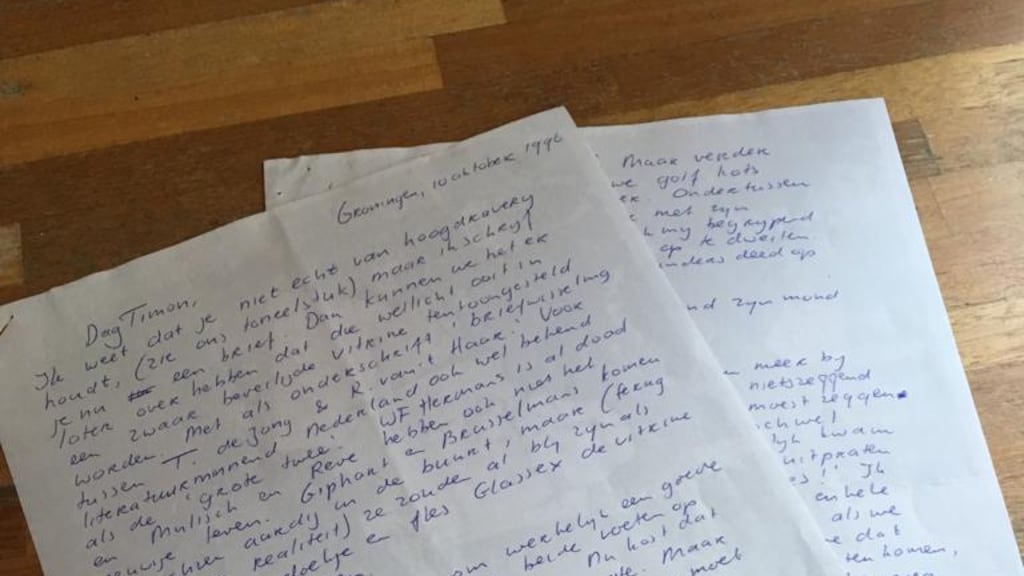 Groningen, 10 oktober 1996
Dag Timon,
Ik weet dat je niet echt van hoogdravery
houdt, (zie ons toneelstuk) maar ik schryf
je nu een brief. Dan kunnen we het er
later over hebben dat die wellicht ooit in
een zwaar beveiligde vitrine tentoongesteld
worden. Met als onderschrift, briefwisseling
tussen T. de Jong & R. van 't Haar. Voor
literatuurminnend Nederland ook wel bekend
als de 'grote twee'. WF Hermans is al dood
en Mulisch en Reve hebben ook niet het
eeuwige leven. Giphart en Brusselmans komen
aardig in de buurt, maar (terug
realiteit) ze zouden al bly zyn als
doekje en fles Glassex de vitrine
om werkelyk een goede
beide voeten op
Nu kost dat
Maar
moet
Maar verder
we golf hots
Ondertussen
met zyn
my begrypend
op te dweilen.
anders deed op
zyn mond
meer by
nietszeggend
moest zeggen.
wel
kwam
uitpraten
Ik
enkele
als we
dat
komen,